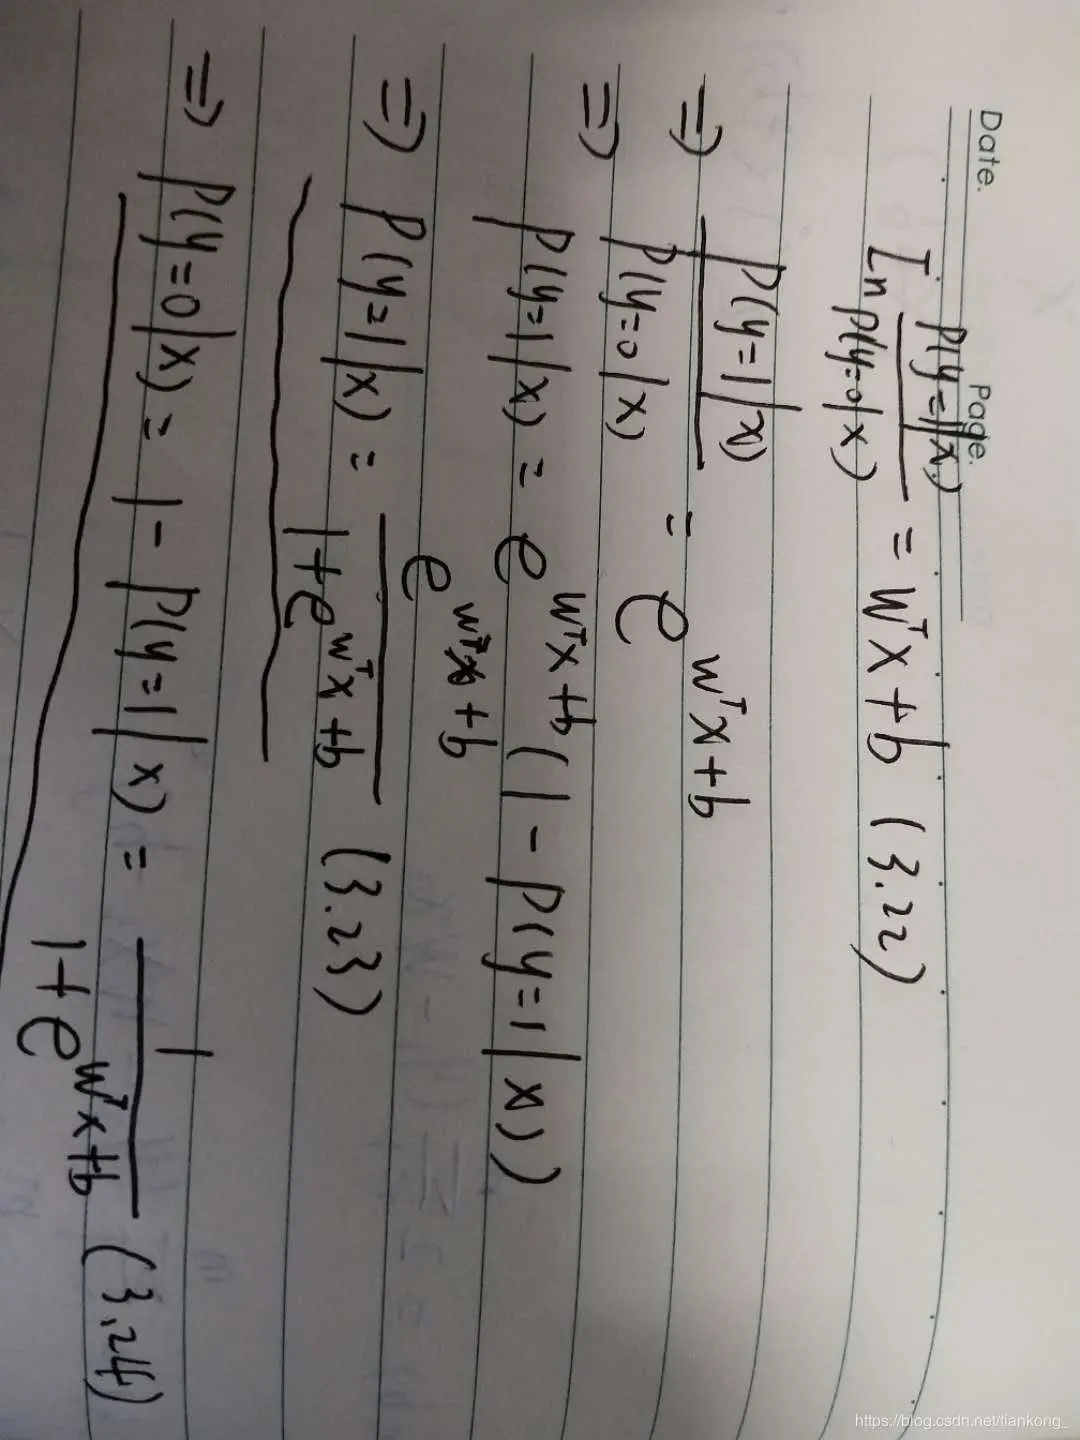 Date. Page.
ln p(y=1|x) / p(y=0|x) = wᵀx+b (3.22)
=> p(y=1|x) / p(y=0|x) = e^(wᵀx+b)
=> p(y=1|x) = e^(wᵀx+b) (1 - p(y=1|x))
=> p(y=1|x) = e^(wᵀx+b) / 1+e^(wᵀx+b) (3.23)
=> p(y=0|x) = 1 - p(y=1|x) = 1 / 1+e^(wᵀx+b) (3.24)
https://blog.csdn.net/tiankong_